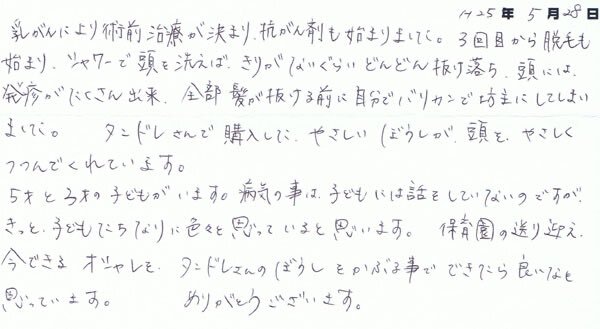 H25年 5月28日
乳がんにより術前治療が決まり、抗がん剤も始まりました。3回目から脱毛も
始まり、シャワーで頭を洗えば、きりがないぐらい どんどん抜け落ち、頭には、
発疹がたくさん出来、全部髪が抜ける前に自分でバリカンで坊主にしてしまい
ました。 タンドレさんで購入した、やさしい ぼうしが、頭を、やさしく
つつんでくれています。
5才と3才の子どもがいます。病気の事は、子どもには話をしていないのですが、
きっと、子どもたちなりに色々と思っていると思います。 保育園の送り迎え、
今できる オシャレを、タンドレさんのぼうし をかぶる事で できたら良いなと
思っています。 ありがとうございます。